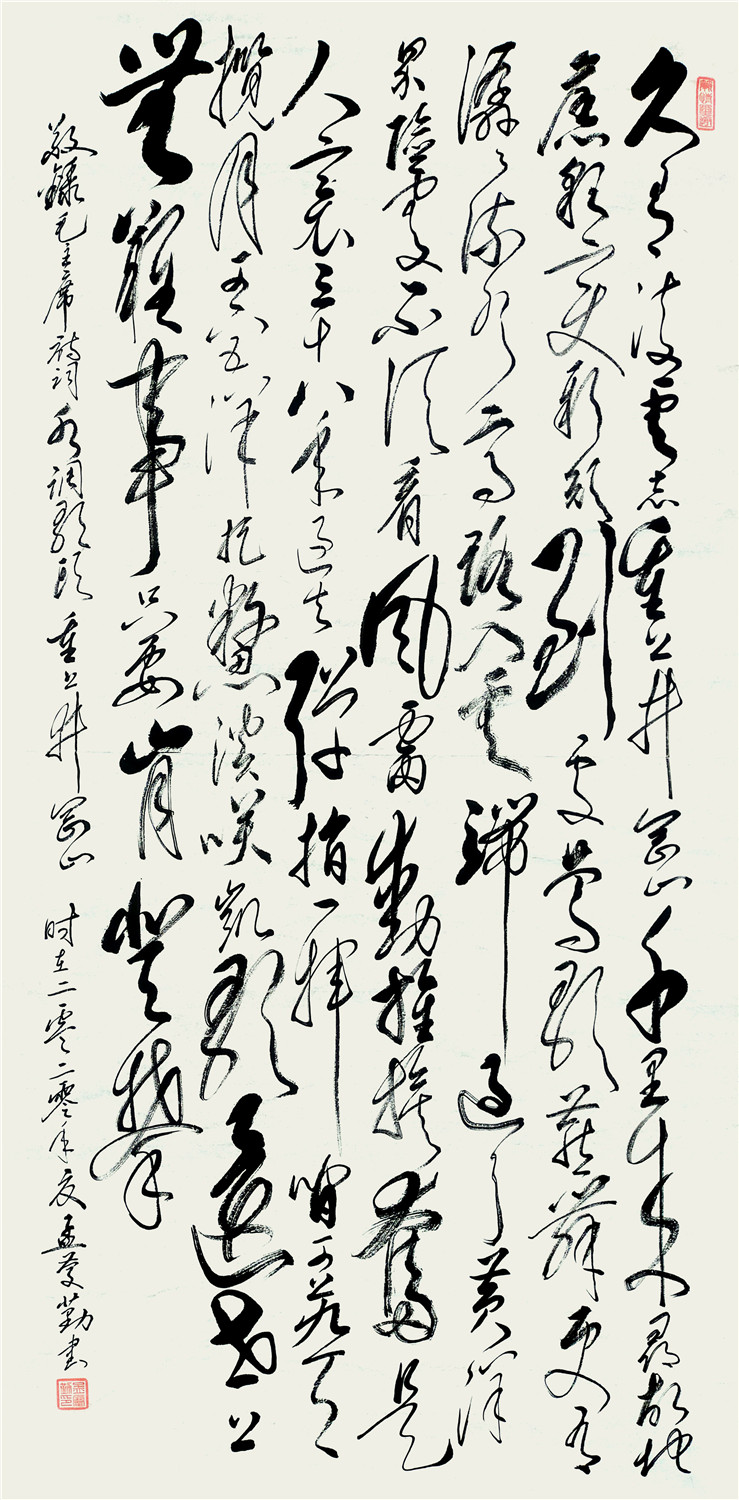 久有凌云志重上井冈山千里来寻故地
舊貌变新颜到处莺歌燕舞更有
潺潺流水高路入云端过了黄洋
界險处不须看风雷動旌旗奮是
人寰三十八年过去弹指一挥间可上九天
揽月可下五洋捉鳖谈笑凯歌还世上
無難事只要肯登攀
敬録毛主席诗词水调歌头重上井冈山 时在二零二零年夏孟庆勤书